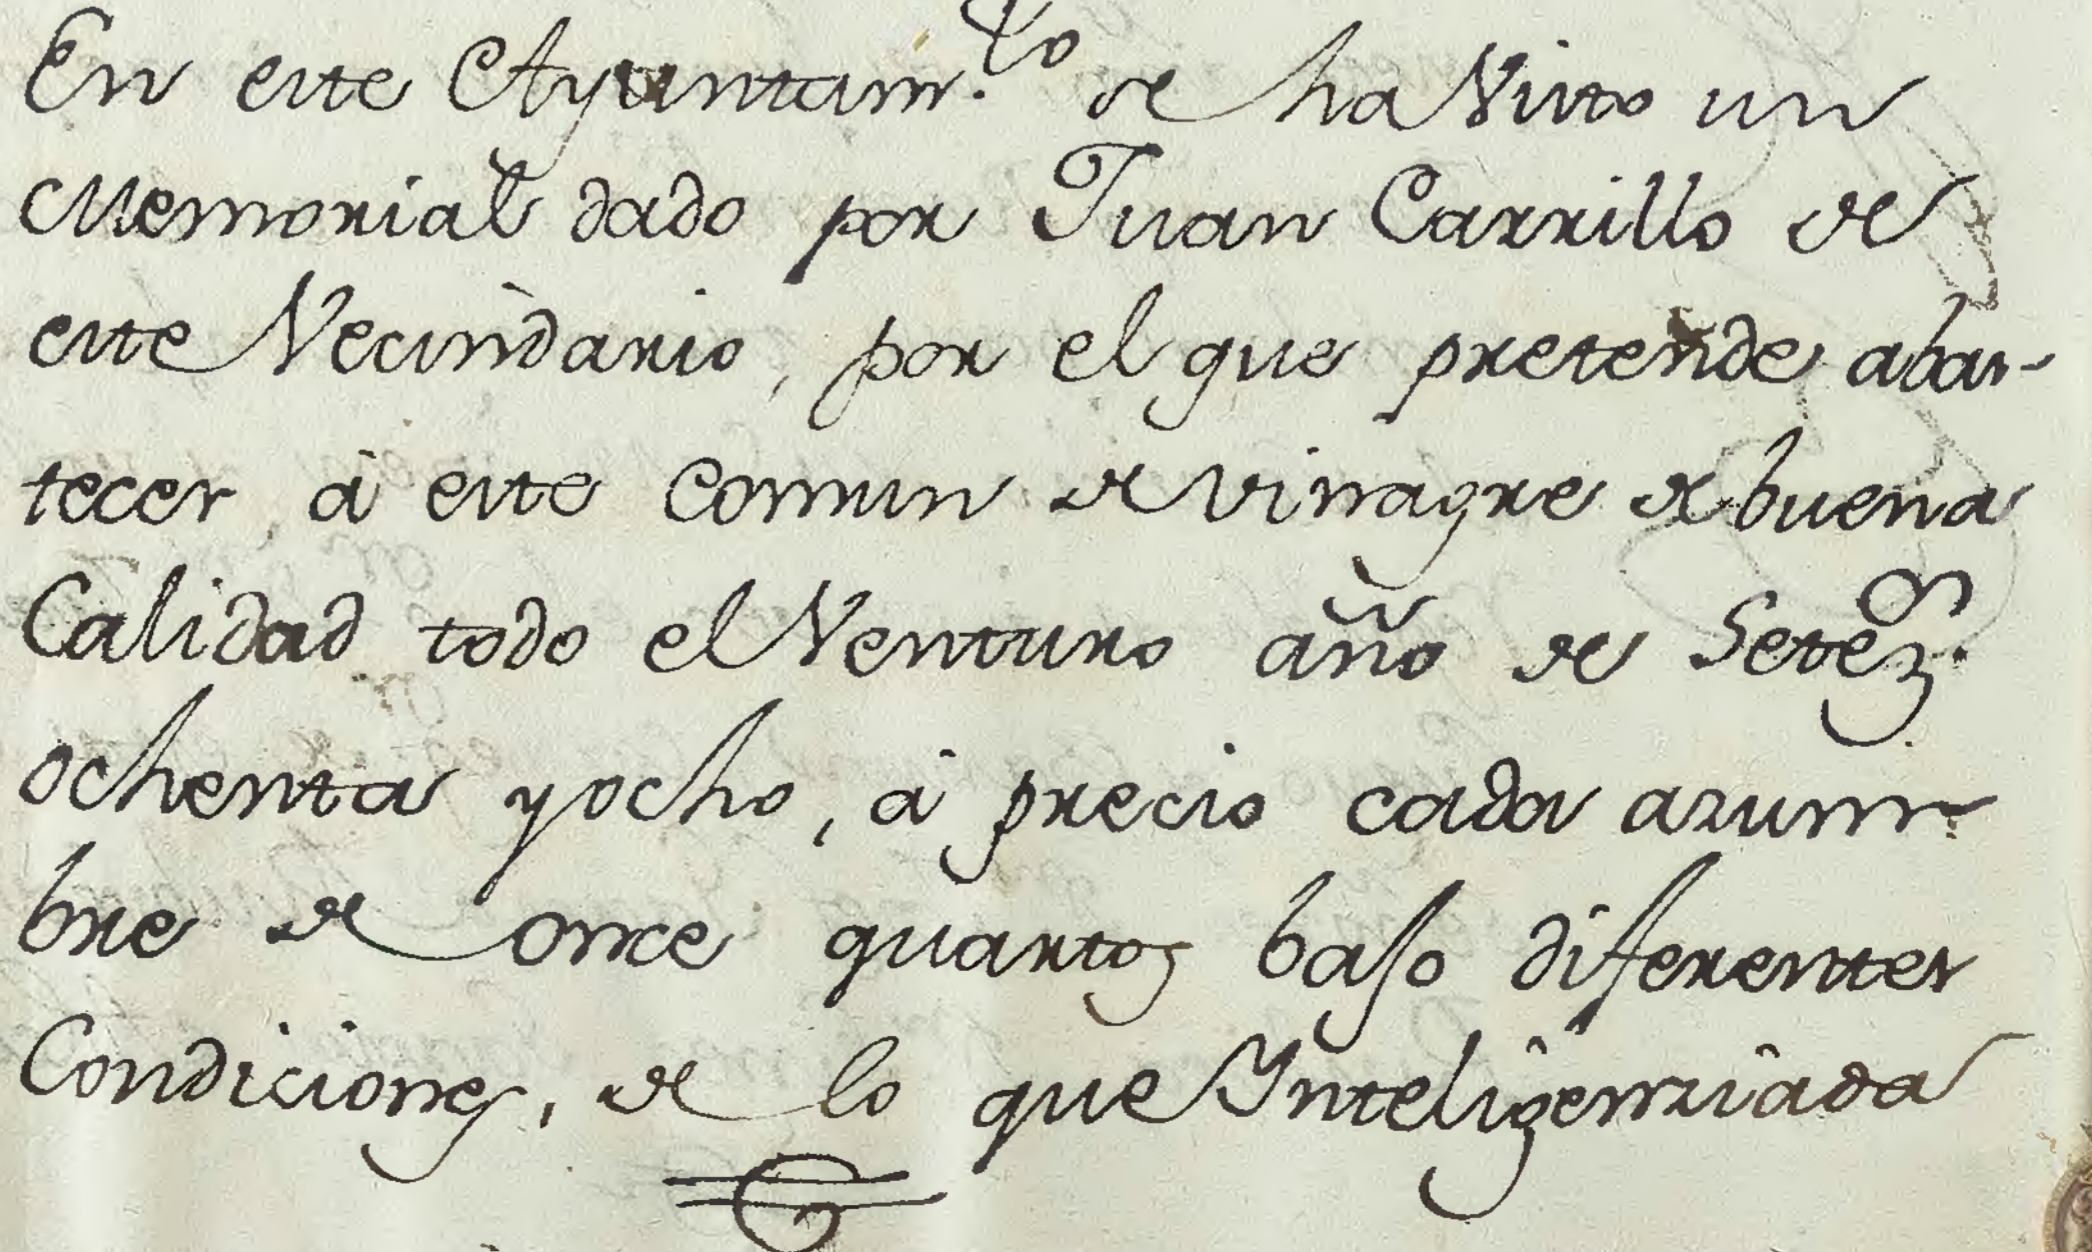 En este Ayuntam.to se ha Visto un
Memorial dado por Juan Carrillo de
este Vecindario, por el que pretende abas-
tecer à este comun de vinagre de buena
Calidad todo el Venturo año de Setez.s
ochenta y ocho, à precio cada azum-
bre de once quartos bajo diferentes
Condiciones, de lo que Ynteligenziada